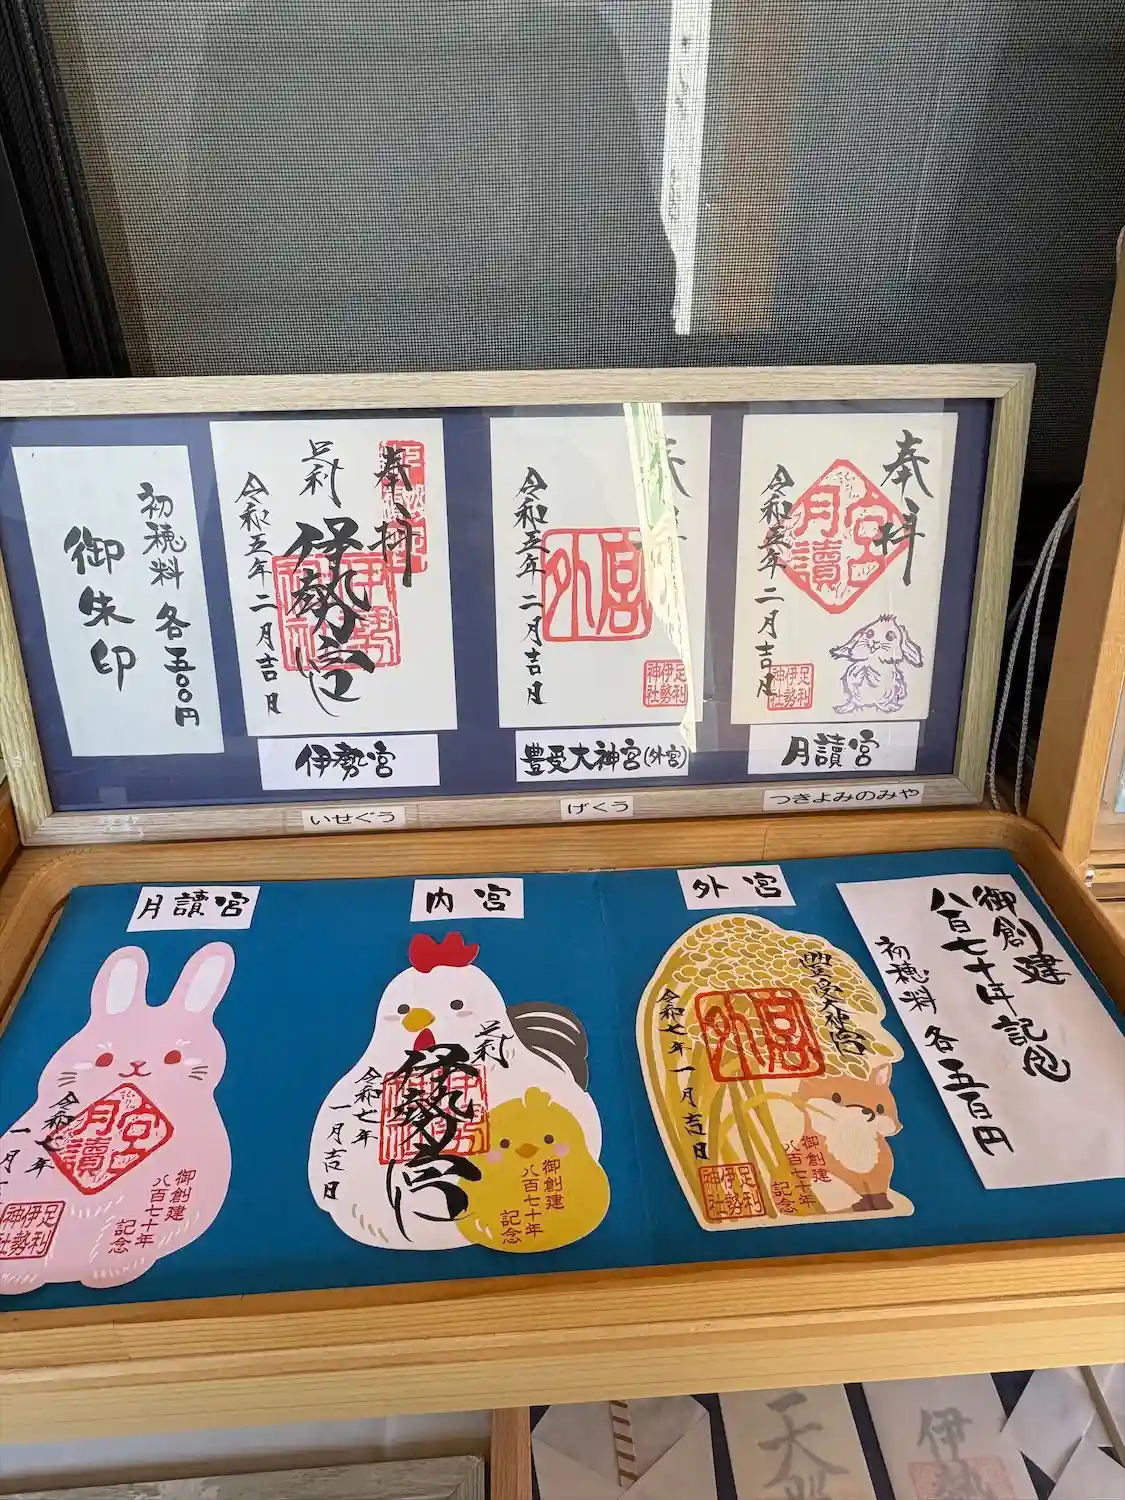 御朱印
初穂料 各五〇〇円
奉拝
足利
伊勢宮
令和五年二月吉日
伊勢宮
いせぐう
奉拝
外宮
令和五年二月吉日
足利
伊勢
神社
豊受大神宮(外宮)
げくう
奉拝
月讀宮
令和五年二月吉日
足利
伊勢
神社
月讀宮
つきよみのみや
月讀宮
月讀宮
令和七年
一月
御創建
八百七十年
記念
足利
伊勢
神社
内宮
足利
伊勢宮
令和七年
一月吉日
御創建
八百七十年
記念
外宮
豊受大神宮
外宮
令和七年一月吉日
御創建
八百七十年
記念
足利
伊勢
神社
御創建
八百七十年記念
初穂料 各五百円
伊勢